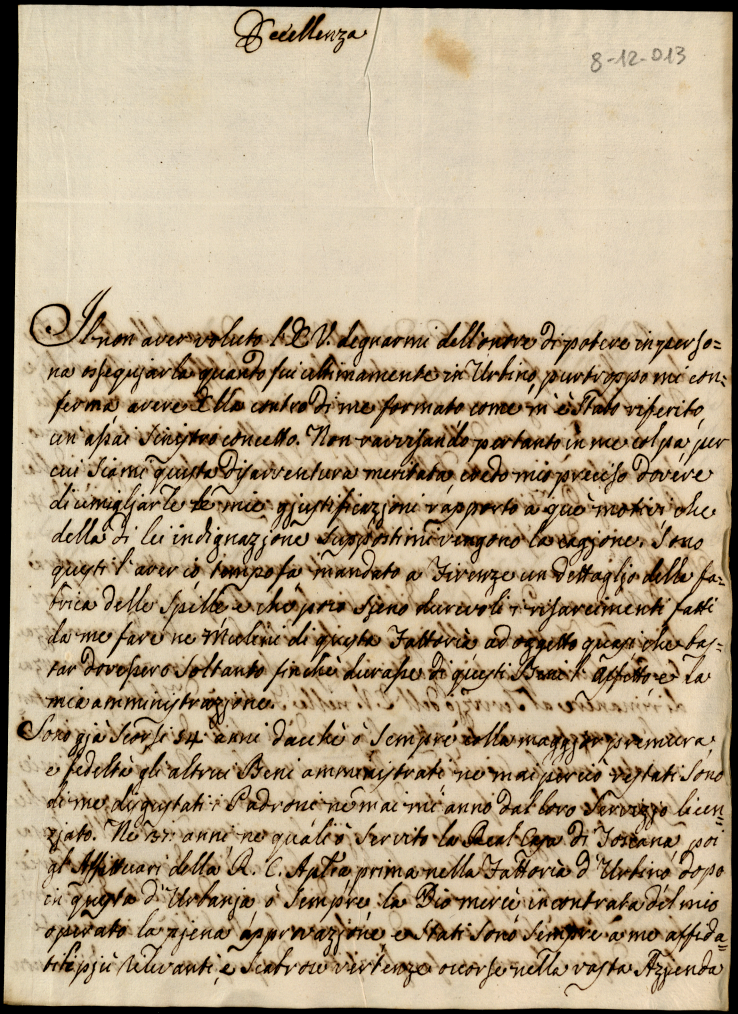 Eccellenza
8-12-013
Il non aver voluto l'E V. degnarmi dell'onore di potere in perso=
na ossequjarla quando fui ultimamente in Urbino, purtroppo mi con=
ferma avere Ella contro di me formato come m'è stato riferito,
un'assai sinistro concetto. Non ravvisando pertanto in me colpa per
cui siami questa disavventura meritata credo mio preciso dovere
di umigliarle le mie gjustificazjoni rapporto a què motivi che
della di lei indignazjone supposti mi vengono la cagjone. Sono
questi l'aver io tempo fa mandato a Firenze un dettagljo della fa=
brica delle Spille e che poco sjeno durevoli i risarcimenti fatti
da me fare ne Molini di questa Fattoria ad oggetto quasi che bas=
tar dovessero soltanto finchè durasse di questi Beni l'affitto e la
mia amministrazjone.
Sono gjà scorsi 54 anni dacchè ò sempre colla maggjor premura,
e fedeltà gli altrui Beni amministrati ne mai perciò restati sono
di me disgustati i Padroni nè mai mi anno dal loro Servizzjo licen=
zjato. Nè 37: anni ne quali ò servito la Real Casa di Toscana poi
gl'Affittuari della R. C. Aplica prima nella Fattoria d'Urbino dopo
in questa d'Urbanja ò sempre la Dio mercè incontrata del mio
operato la pjena approvazjone e stati sono sempre a me affida=
ti li pjù rilevanti, e scabrose vertenze occorse nella vasta Azjenda